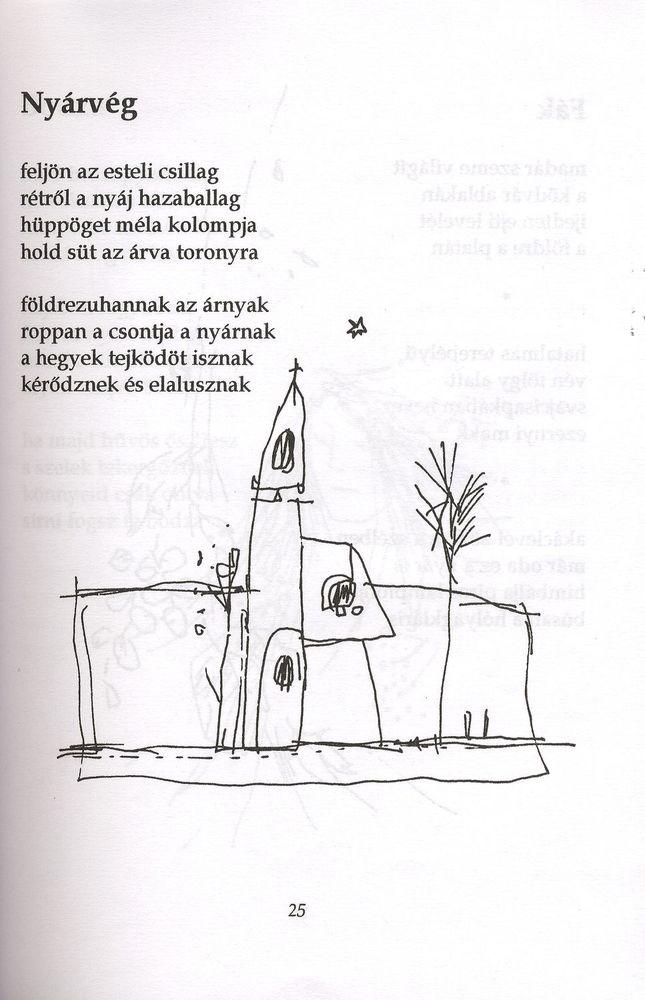 Nyárvég
feljön az esteli csillag
rétről a nyáj hazaballag
hüppöget méla kolompja
hold süt az árva toronyra
földrezuhannak az árnyak
roppan a csontja a nyárnak
a hegyek tejködöt isznak
kérődznek és elalusznak
25